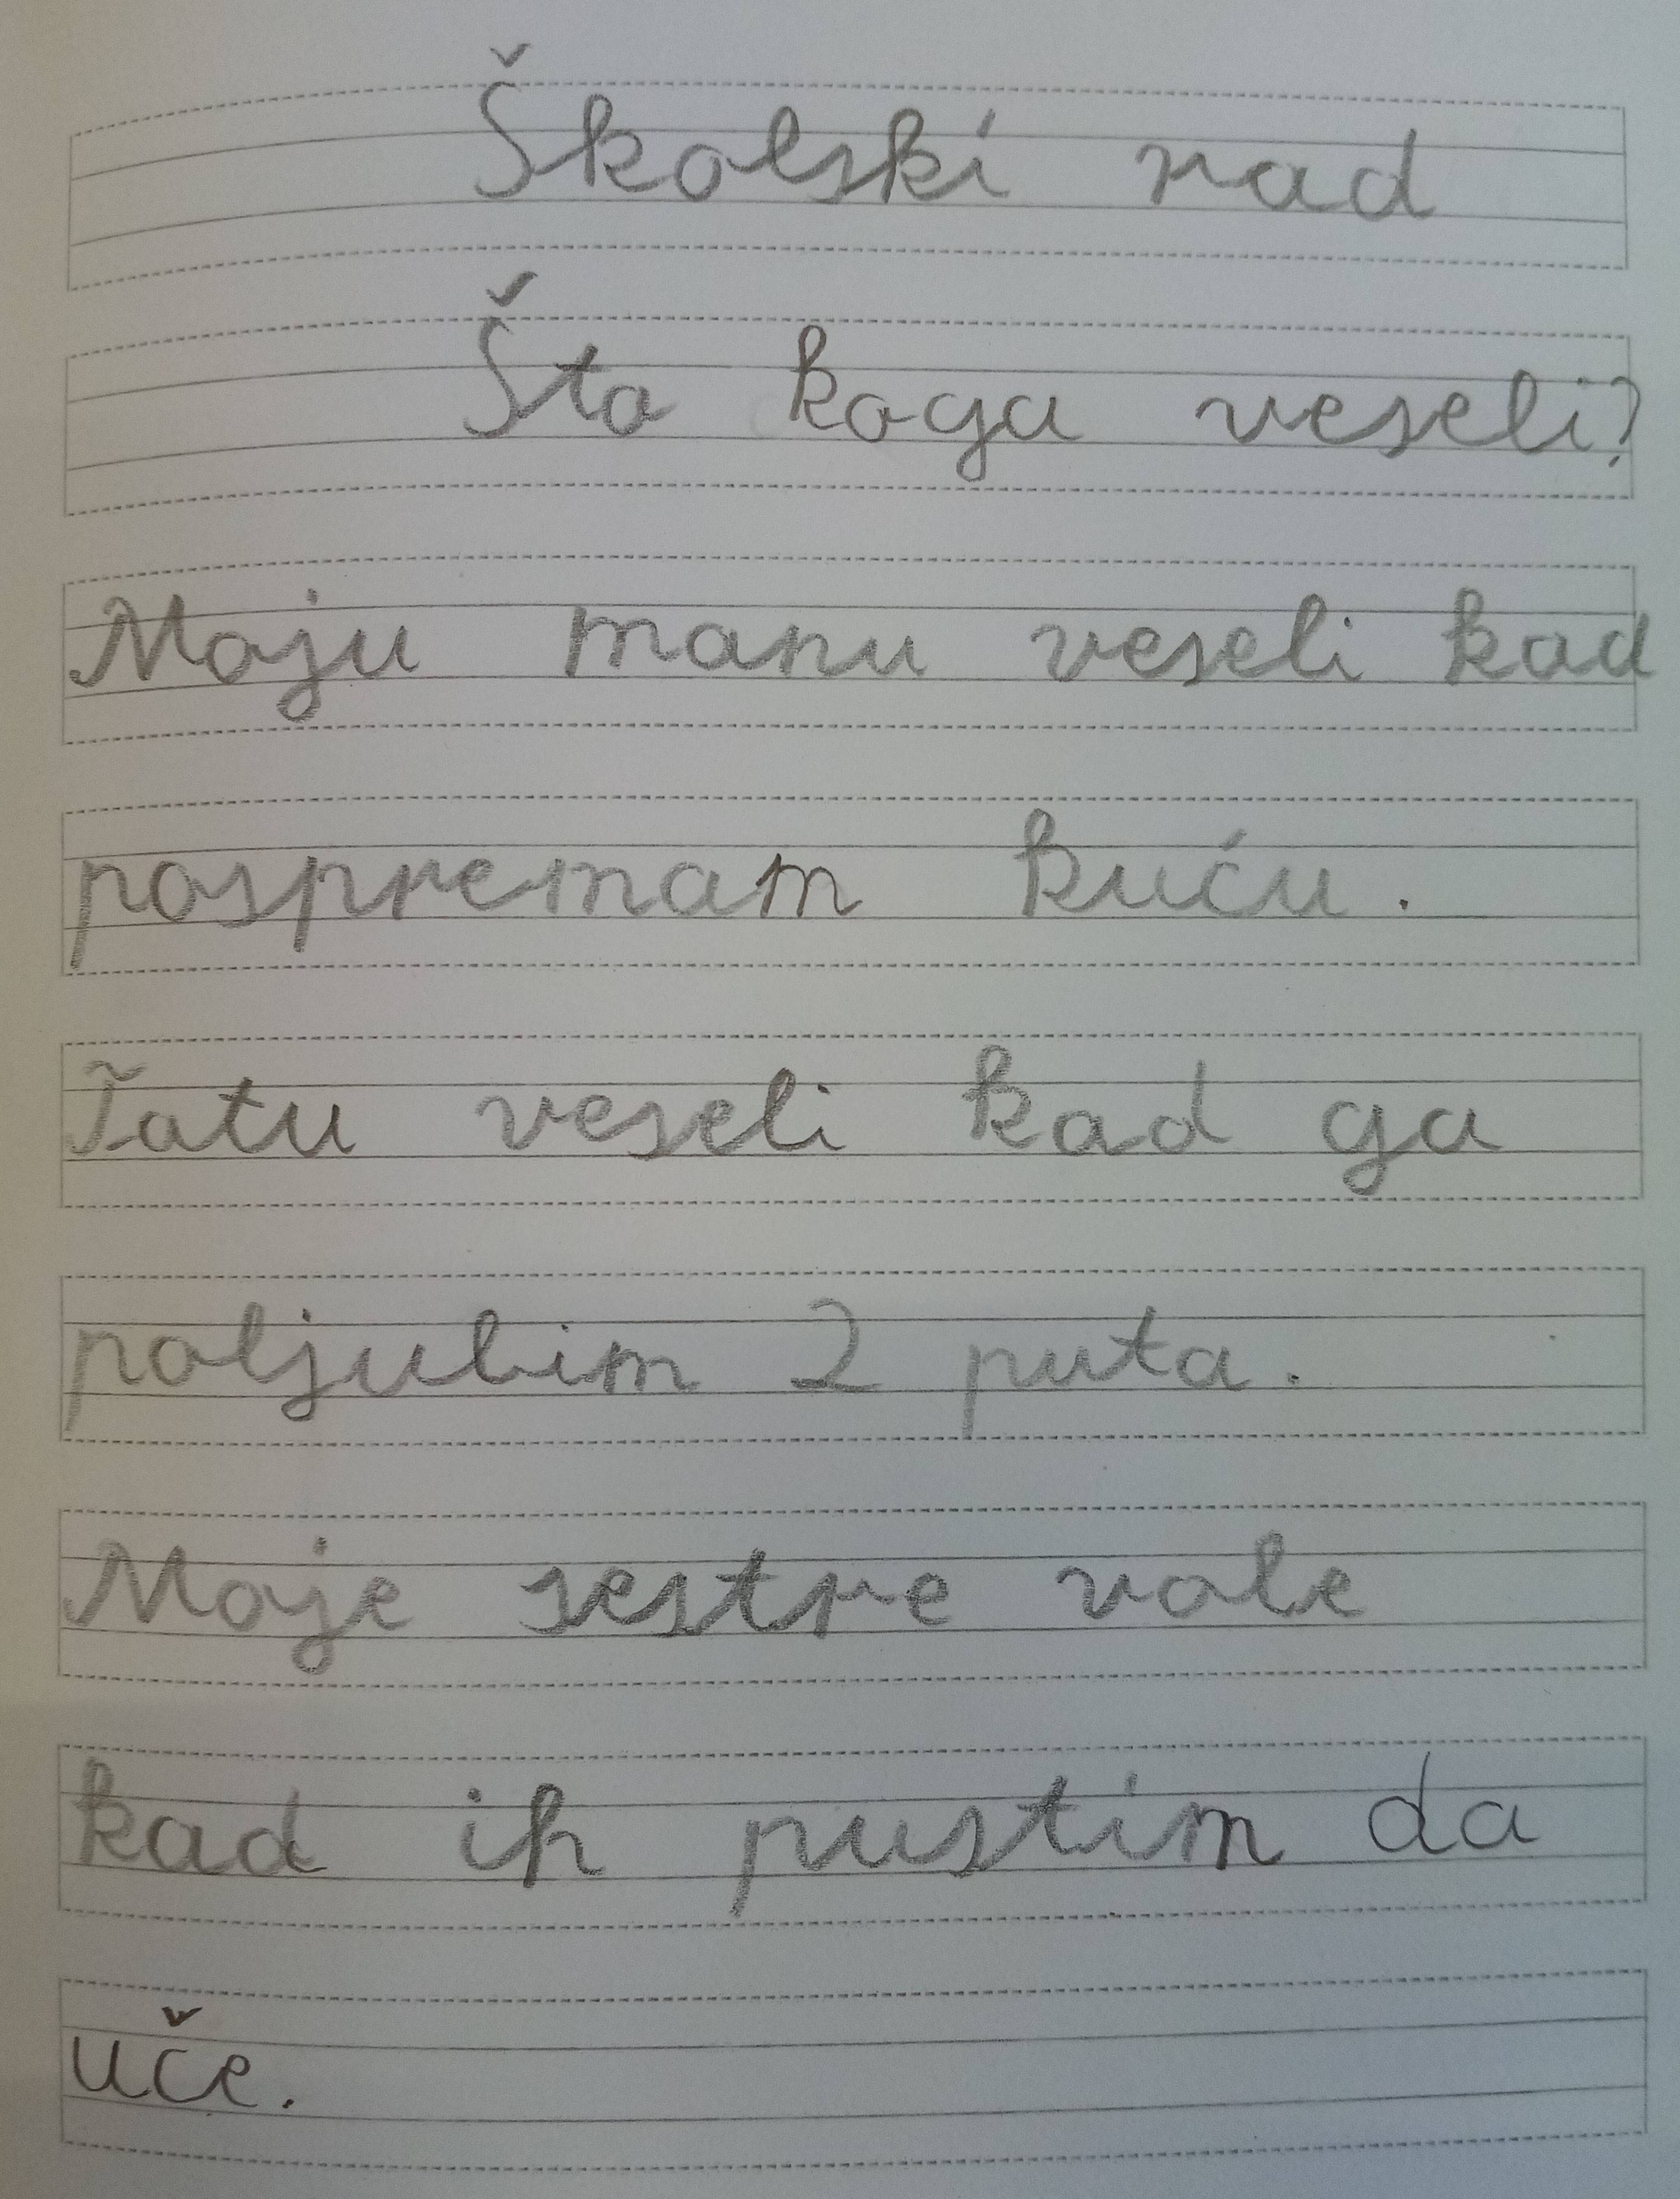 Školski rad
Što koga veseli?
Moju manu veseli kad
pospremam kuću.
Tatu veseli kad ga
poljubim 2 puta.
Moje sestre vole
kad ih pustim da
uče.